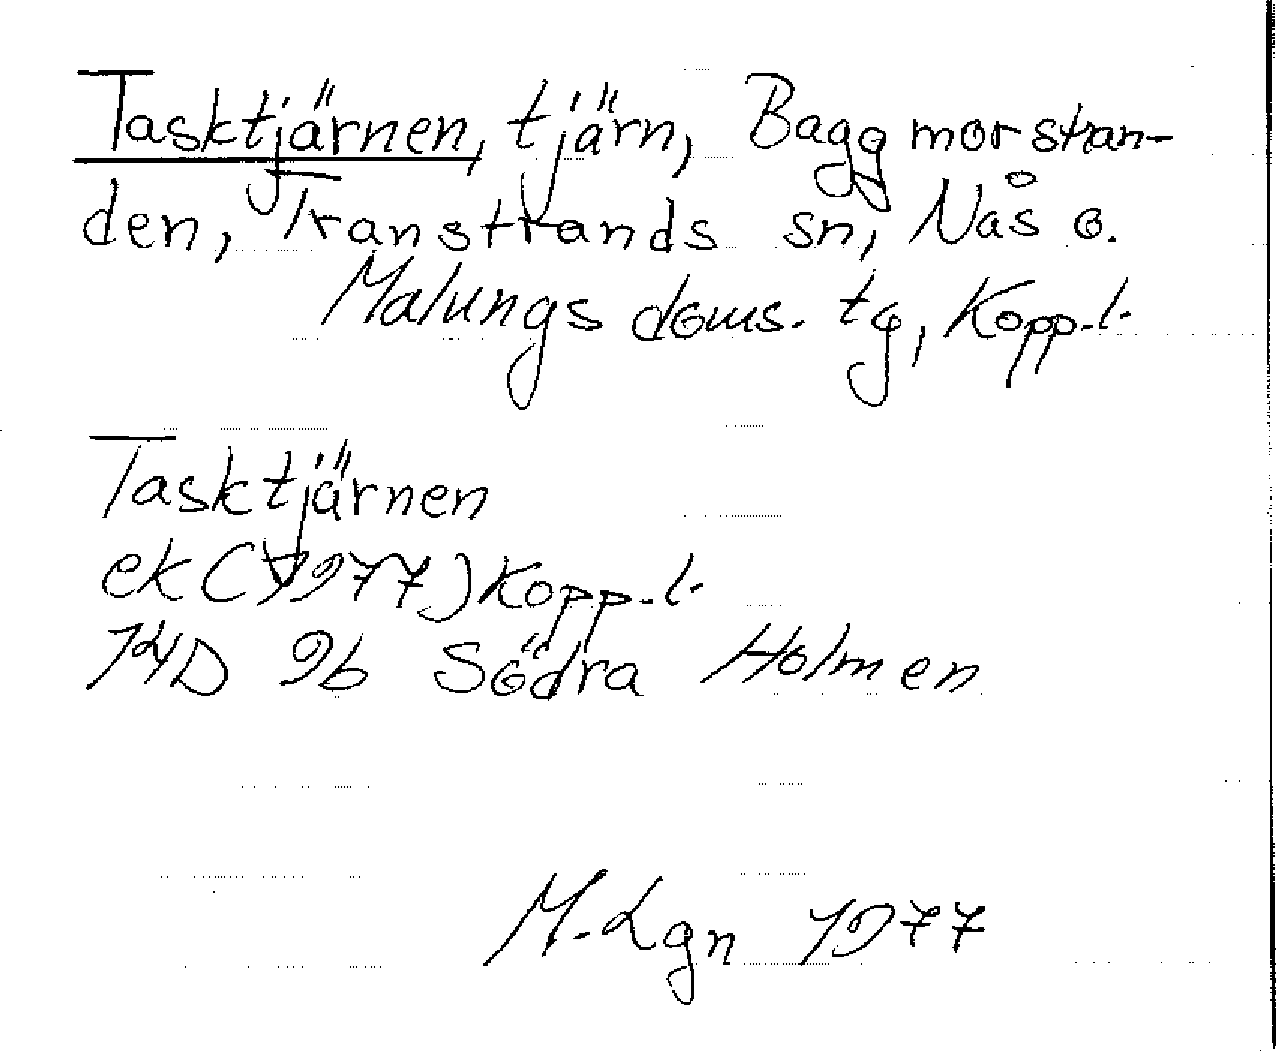 Tasktjärnen, tjärn, Baggmorstran-
den, Transtrands sn, Nås o.
Malungs doms. tg, Kopp.l.
Tasktjärnen
ek (1977) Kopp.l.
14D 9b Södra Holmen
M. Lgn 1977